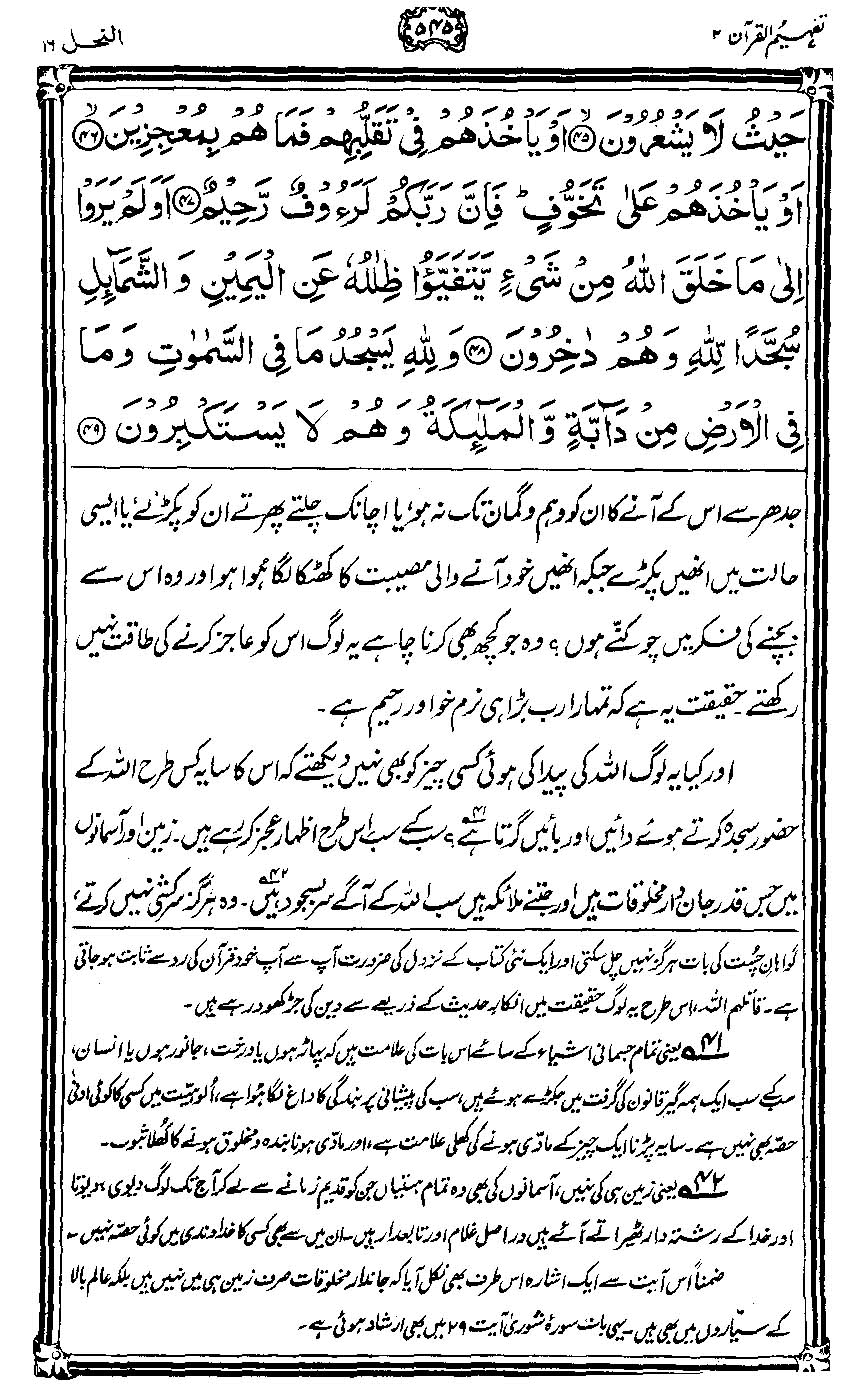 تفہیم القرآن ۲
۵۴۵
النحل ۱۶
حَيْثُ لَا يَشْعُرُوْنَ ﴿۴۵﴾ اَوْ يَاْخُذَهُمْ فِيْ تَقَلُّبِهِمْ فَمَا هُمْ بِمُعْجِزِيْنَ ﴿۴۶﴾
اَوْ يَاْخُذَهُمْ عَلٰى تَخَوُّفٍ ؕ فَاِنَّ رَبَّكُمْ لَرَءُوْفٌ رَّحِيْمٌ ﴿۴۷﴾ اَوَلَمْ يَرَوْا
اِلٰى مَا خَلَقَ اللّٰهُ مِنْ شَيْءٍ يَّتَفَيَّؤُا ظِلٰلُهٗ عَنِ الْيَمِيْنِ وَالشَّمَآئِلِ
سُجَّدًا لِّلّٰهِ وَهُمْ دٰخِرُوْنَ ﴿۴۸﴾ وَلِلّٰهِ يَسْجُدُ مَا فِي السَّمٰوٰتِ وَمَا
فِي الْاَرْضِ مِنْ دَآبَّةٍ وَّالْمَلٰٓئِكَةُ وَهُمْ لَا يَسْتَكْبِرُوْنَ ﴿۴۹﴾
جدھر سے اس کے آنے کا ان کو وہم و گمان تک نہ ہو، یا اچانک چلتے پھرتے ان کو پکڑ لے، یا ایسی
حالت میں انھیں پکڑے جبکہ انھیں خود آنے والی مصیبت کا کھٹکا لگا ہُوا ہو اور وہ اس سے
بچنے کی فکر میں چوکنّے ہوں؟ وہ جو کچھ بھی کرنا چاہے یہ لوگ اس کو عاجز کرنے کی طاقت نہیں
رکھتے۔ حقیقت یہ ہے کہ تمہارا رب بڑا ہی نرم خو اور رحیم ہے۔
اور کیا یہ لوگ اللہ کی پیدا کی ہوئی کسی چیز کو بھی نہیں دیکھتے کہ اس کا سایہ کس طرح اللہ کے
حضور سجدہ کرتے ہوئے دائیں اور بائیں گرتا ہے؟۴۱ سب کے سب اس طرح اظہار عجز کر رہے ہیں۔ زمین اور آسمانوں
میں جس قدر جان دار مخلوقات ہیں اور جتنے ملائکہ ہیں سب اللہ کے آگے سر بسجود ہیں۔۴۲ وہ ہرگز سرکشی نہیں کرتے،
گواہان چُست کی بات ہرگز نہیں چل سکتی اور ایک نئی کتاب کے نزول کی ضرورت آپ سے آپ خود قرآن کی رد سے ثابت ہو جاتی
ہے۔ قاتلہم اللہ، اس طرح یہ لوگ حقیقت میں انکارِ حدیث کے ذریعے سے دین کی جڑ کھود رہے ہیں۔
۴۱ یعنی تمام جسمانی اشیاء کے سائے اس بات کی علامت ہیں کہ پہاڑ ہوں یا درخت، جانور ہوں یا انسان،
سب کے سب ایک ہمہ گیر قانون کی گرفت میں جکڑے ہوئے ہیں، سب کی پیشانی پر بندگی کا داغ لگا ہُوا ہے، اُلوہیّت میں کسی کا کوئی ادنیٰ
حصہ بھی نہیں ہے۔ سایہ پڑنا ایک چیز کے مادّی ہونے کی کھلی علامت ہے، اور مادّی ہونا بندہ و مخلوق ہونے کا کُھلا ثبوت۔
۴۲ یعنی زمین ہی کی نہیں، آسمانوں کی بھی وہ تمام ہستیاں جن کو قدیم زمانے سے لے کر آج تک لوگ دیوی، دیوتا
اور خدا کے رشتہ دار ٹھیراتے آئے ہیں دراصل غلام اور تابعدار ہیں۔ ان میں سے بھی کسی کا خداوندی میں کوئی حصّہ نہیں۔
ضمناً اس آیت سے ایک اشارہ اس طرف بھی نکل آیا کہ جاندار مخلوقات صرف زمین ہی میں نہیں ہیں بلکہ عالم بالا
کے سیّاروں میں بھی ہیں۔ یہی بات سورۂ شوریٰ آیت ۲۹ میں بھی ارشاد ہوئی ہے۔